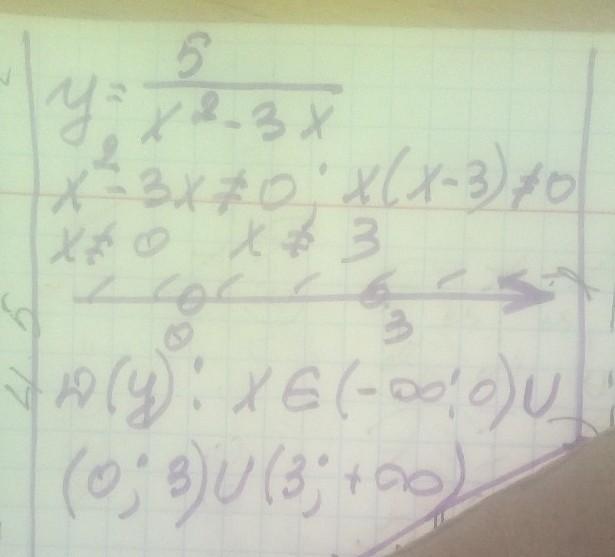 y = 5 / x² - 3x
x² - 3x ≠ 0; x(x-3) ≠ 0
x ≠ 0 x ≠ 3
0 3
D(y): x ∈ (-∞; 0) ∪
(0; 3) ∪ (3; +∞)